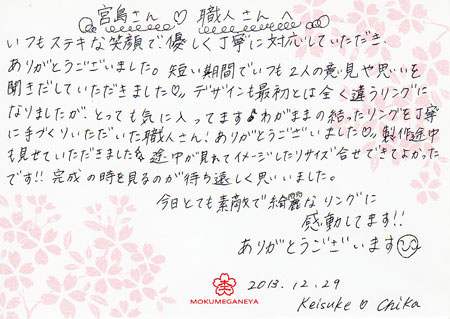 宮島さん♡職人さんへ
いつもステキな笑顔で優しく丁寧に対応していただき、
ありがとうございました。短い期間でいつも2人の意見や思いを
聞きだしていただきました♡〃デザインも最初とは全く違うリングに
なりましたが、とっても気に入ってます♪わがままの結ったリングを丁寧
に手づくりいただいた職人さん!ありがとうございました♡〃製作途中
も見せていただきました 途中が見れてイメージしたりサイズ合せできてよかった
です!!完成の時を見るのが待ち遠しく思いました。
今日とても素敵で綺麗なリングに
感動してます!!
ありがとうございます
2013.12.29
MOKUMEGANEYA
Keisuke♡Chika